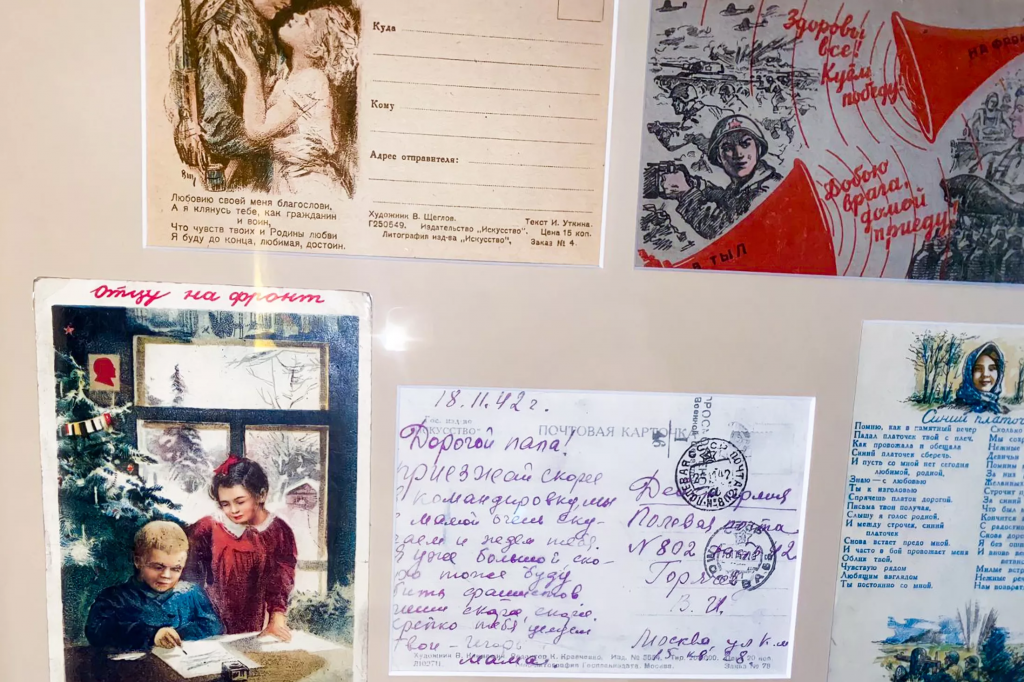 Куда
Кому
Адрес отправителя:
Любовию своей меня благослови,
А я клянусь тебе, как гражданин
и воин,
Что чувств твоих и Родины любви
Я буду до конца, любимая, достоин.
Художник В. Щеглов.
Текст И. Уткина.
Г250549. Издательство „Искусство". Цена 15 коп.
Литография изд-ва „Искусство". Заказ № 4.
Здоровы
все!
Куём
победу!
НА ФРО
Добью
врага,
домой
приеду!
В ТЫЛ
Отцу на фронт
18.11.42 г.
ПОЧТОВАЯ КАРТОЧКА
Дорогой папа!
приезжай скорее
командировку, мы
с мамой очень ску-
чаем и ждем тебя.
Я уже большой ско-
ро тоже буду
бить фашистов
скорей.
крепко тебя целуем
твои -
мама
Полевая почта
N 802
В. И.
Москва, ул К. М
Синий платоч
Помню, как в памятный вечер
Падал платочек твой с плеч,
Как провожала и обещала
Синий платочек сберечь.
И пусть со мной нет сегодня
любимой, родной,
Знаю — с любовью
Ты к изголовью
Спрячешь платок дорогой.
Письма твои получая,
Слышу я голос родной,
И между строчек, синий
платочек
Снова встает предо мной.
И часто в бой провожает меня
Облик твой,
Чувствую рядом
Любящим взглядом
Ты постоянно со мной.
Сколько
Мы
Нежные
Девичьи
Помним
За
Желанны
Строчит
За синий
Что был
Кончится
С радостью
Снова
Я без
И вновь
Милые
Нежные
Нам